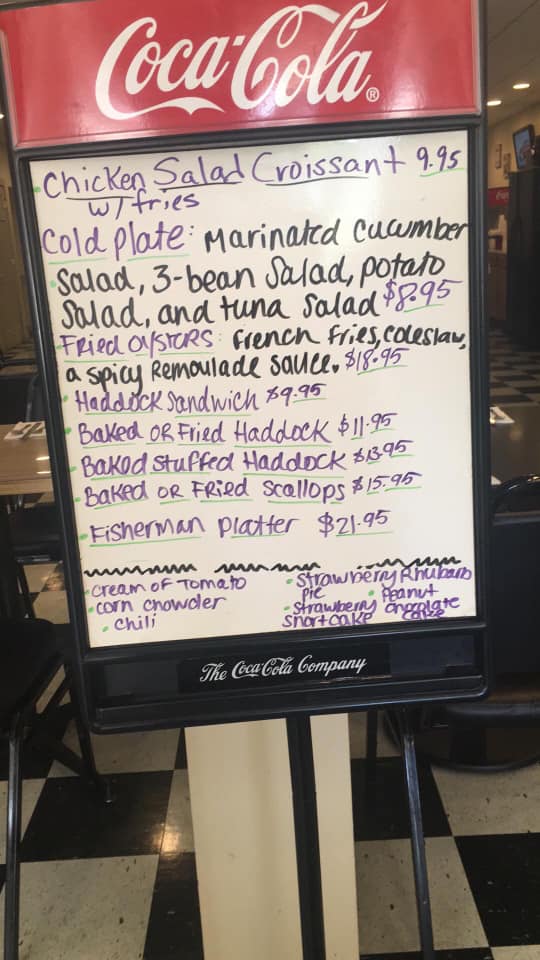 Coca-Cola ®
Chicken Salad Croissant 9.95
w/ fries
Cold Plate: Marinated Cucumber
Salad, 3-bean Salad, potato
Salad, and tuna Salad $8.95
Fried oysters: french fries, coleslaw,
a spicy Remoulade sauce. $18.95
Haddock Sandwich $9.95
Baked or Fried Haddock $11.95
Baked Stuffed Haddock $13.95
Baked or Fried Scallops $15.95
Fisherman Platter $21.95
cream of Tomato
corn chowder
chili
Strawberry Rhubarb
Pie
Strawberry
Shortcake
Peanut
chocolate
cake
The Coca-Cola Company